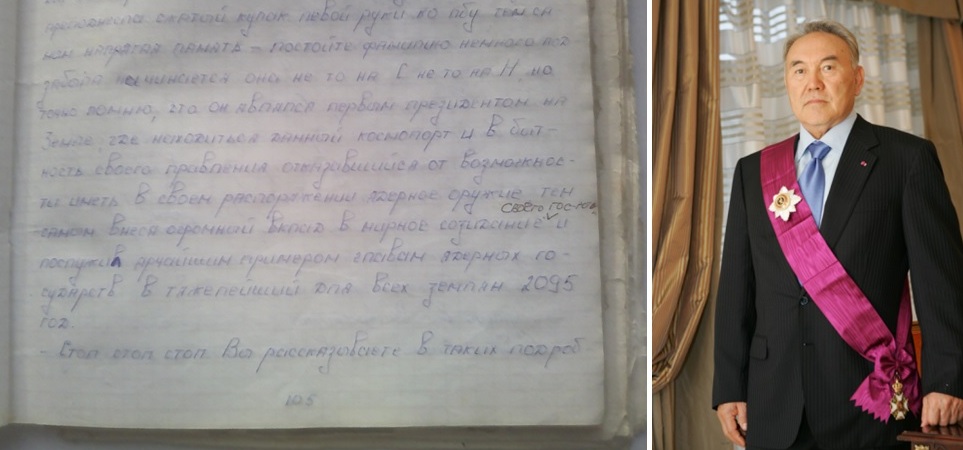 прислонила сжатый кулак левой руки ко лбу тем са
как напрягая память – постойте фамилию немного поз
забыла начинается она не то на С не то на Н мо
точно помню, что он являлся первым президентом на
Земле, где находиться данный космопорт и в быт-
ность своего правления отказавшийся от возможнос-
ти иметь в своем распоряжении ядерное оружие тем
своего госу
самым внеся огромный вклад в мирное созидание и
послужил ярчайшим примером главам ядерных го-
сударств в тяжелейший для всех землян 2095
год.
- Стоп стоп стоп. Вы рассказываете в таких подроб
105